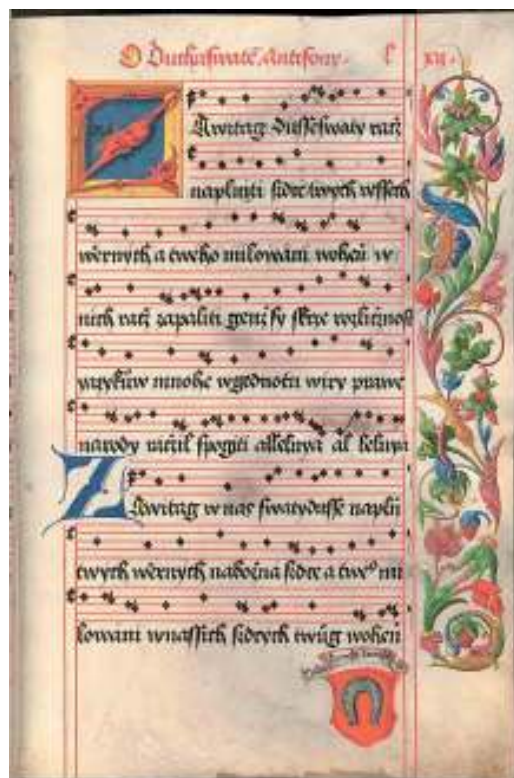 O Duchu swatem, Antifony. l xii.
Zawitag Dusse swaty racz
naplniti sidce twych wssech
wěrnych a tweho milowani woheň w
nich racz zapaliti genz sy skrze rozlicznost
yazykuow mnohe w gednotu wiry prawe
narody raczil spogiti alleluya al leluya
Zawitag w nas swaty dusse naplň
twych wěrnych nabožna sidce a tweº mi
lowani w nassich sidcych twůg woheň